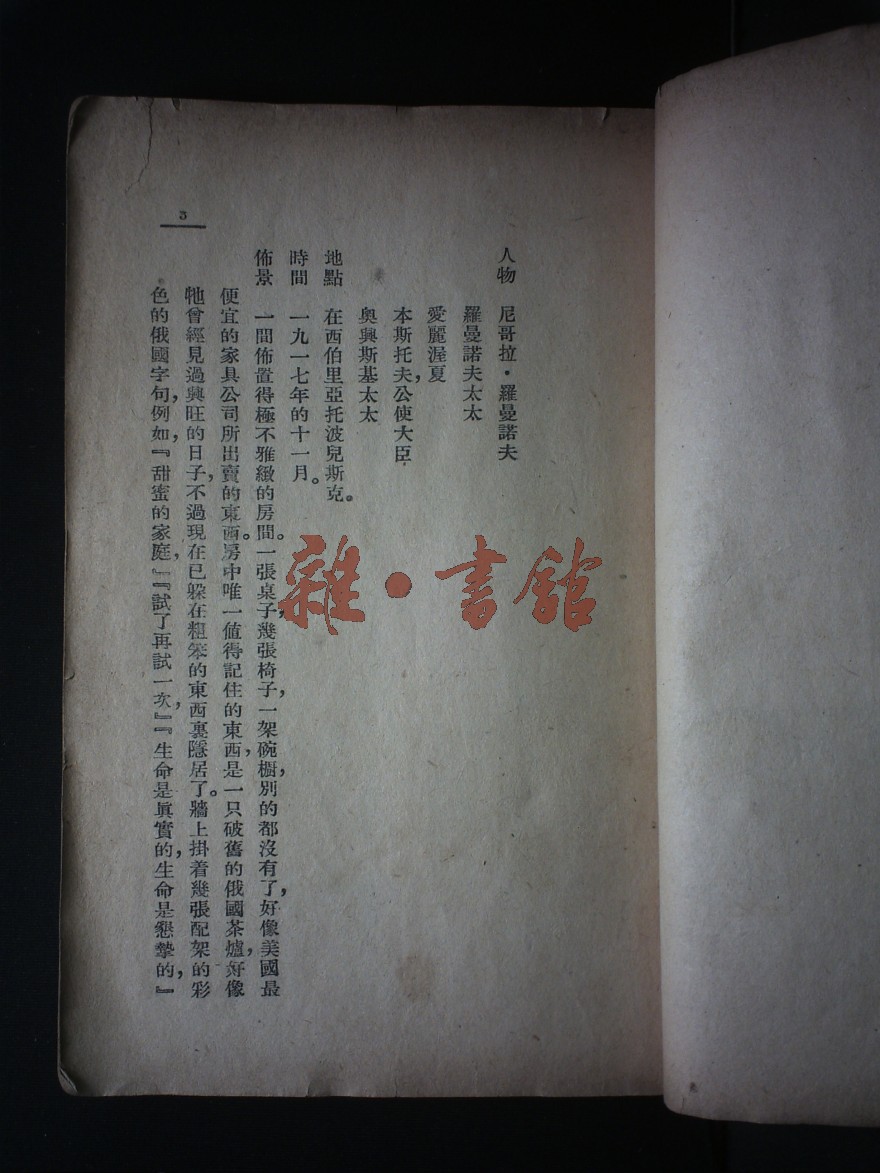 人物 尼哥拉・羅曼諾夫
羅曼諾夫太太
愛麗渥夏
本斯托夫,公使大臣
奥興斯基太太
地點 在西伯里亞托波兒斯克。
時間 一九一七年的十一月。
佈景 一間佈置得極不雅緻的房間。一張桌子,幾張椅子,一架碗櫥,別的都沒有了,好像美國最
便宜的家具公司所出賣的東西。房中唯一值得記住的東西,是一只破舊的俄國茶爐,好像
牠曾經見過興旺的日子,不過現在已躲在粗笨的東西裏隱居了。牆上掛着幾張配架的彩
色的俄國字句,例如,『甜蜜的家庭,』『試了再試一次,』『生命是眞實的,生命是懇摯的,』
3
雜・書舘